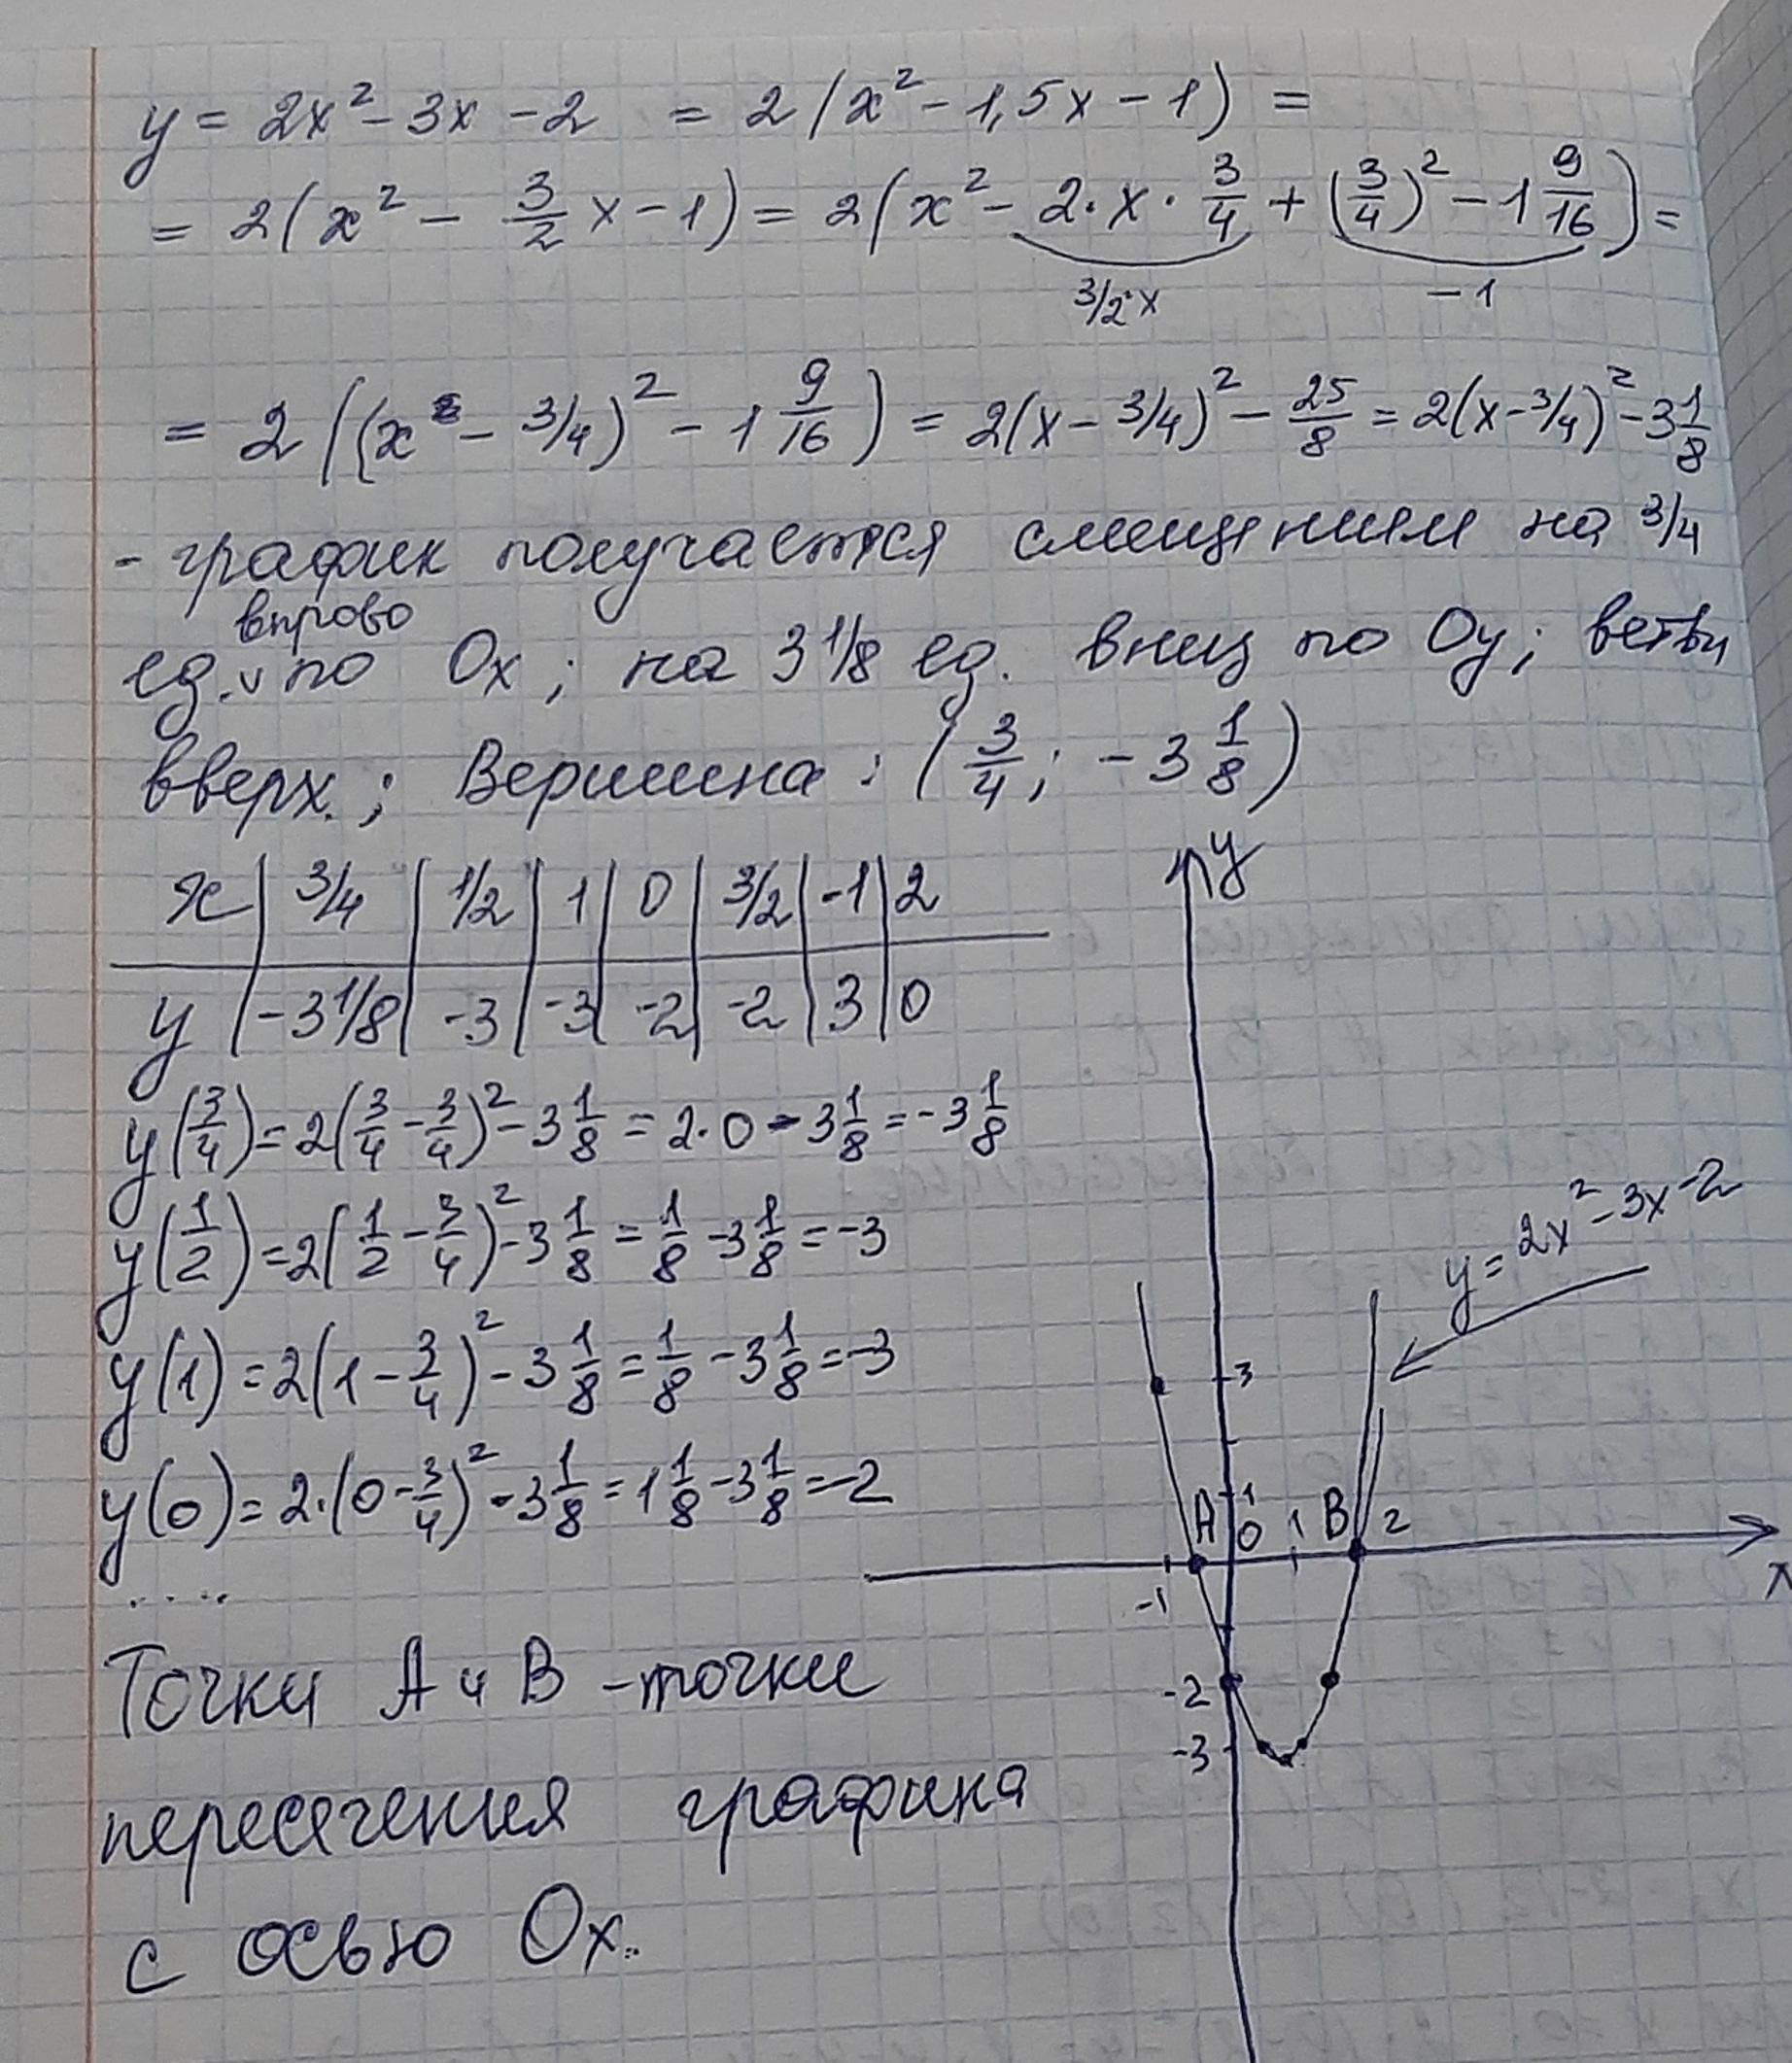 y = 2x² - 3x - 2 = 2(x² - 1,5x - 1) =
= 2(x² - 3/2 x - 1) = 2(x² - 2·x·3/4 + (3/4)² - 1 9/16) =
3/2·x - 1
= 2((x - 3/4)² - 1 9/16) = 2(x - 3/4)² - 25/8 = 2(x - 3/4)² - 3 1/8
- график получается смещением на 3/4
вправо
ед. v по Ox; на 3 1/8 ед. вниз по Oy; ветви
вверх.; Вершина: (3/4; -3 1/8)
x | 3/4 | 1/2 | 1 | 0 | 3/2 | -1 | 2
y | -3 1/8 | -3 | -3 | -2 | -2 | 3 | 0
y(3/4) = 2(3/4 - 3/4)² - 3 1/8 = 2·0 - 3 1/8 = -3 1/8
y(1/2) = 2(1/2 - 3/4)² - 3 1/8 = 1/8 - 3 1/8 = -3
y(1) = 2(1 - 3/4)² - 3 1/8 = 1/8 - 3 1/8 = -3
y(0) = 2·(0 - 3/4)² - 3 1/8 = 1 1/8 - 3 1/8 = -2
.....
Точки A и B - точки
пересечения графика
с осью Ox.
y
y = 2x² - 3x - 2
3
1
A 0 1 B 2
-1
x
-2
-3